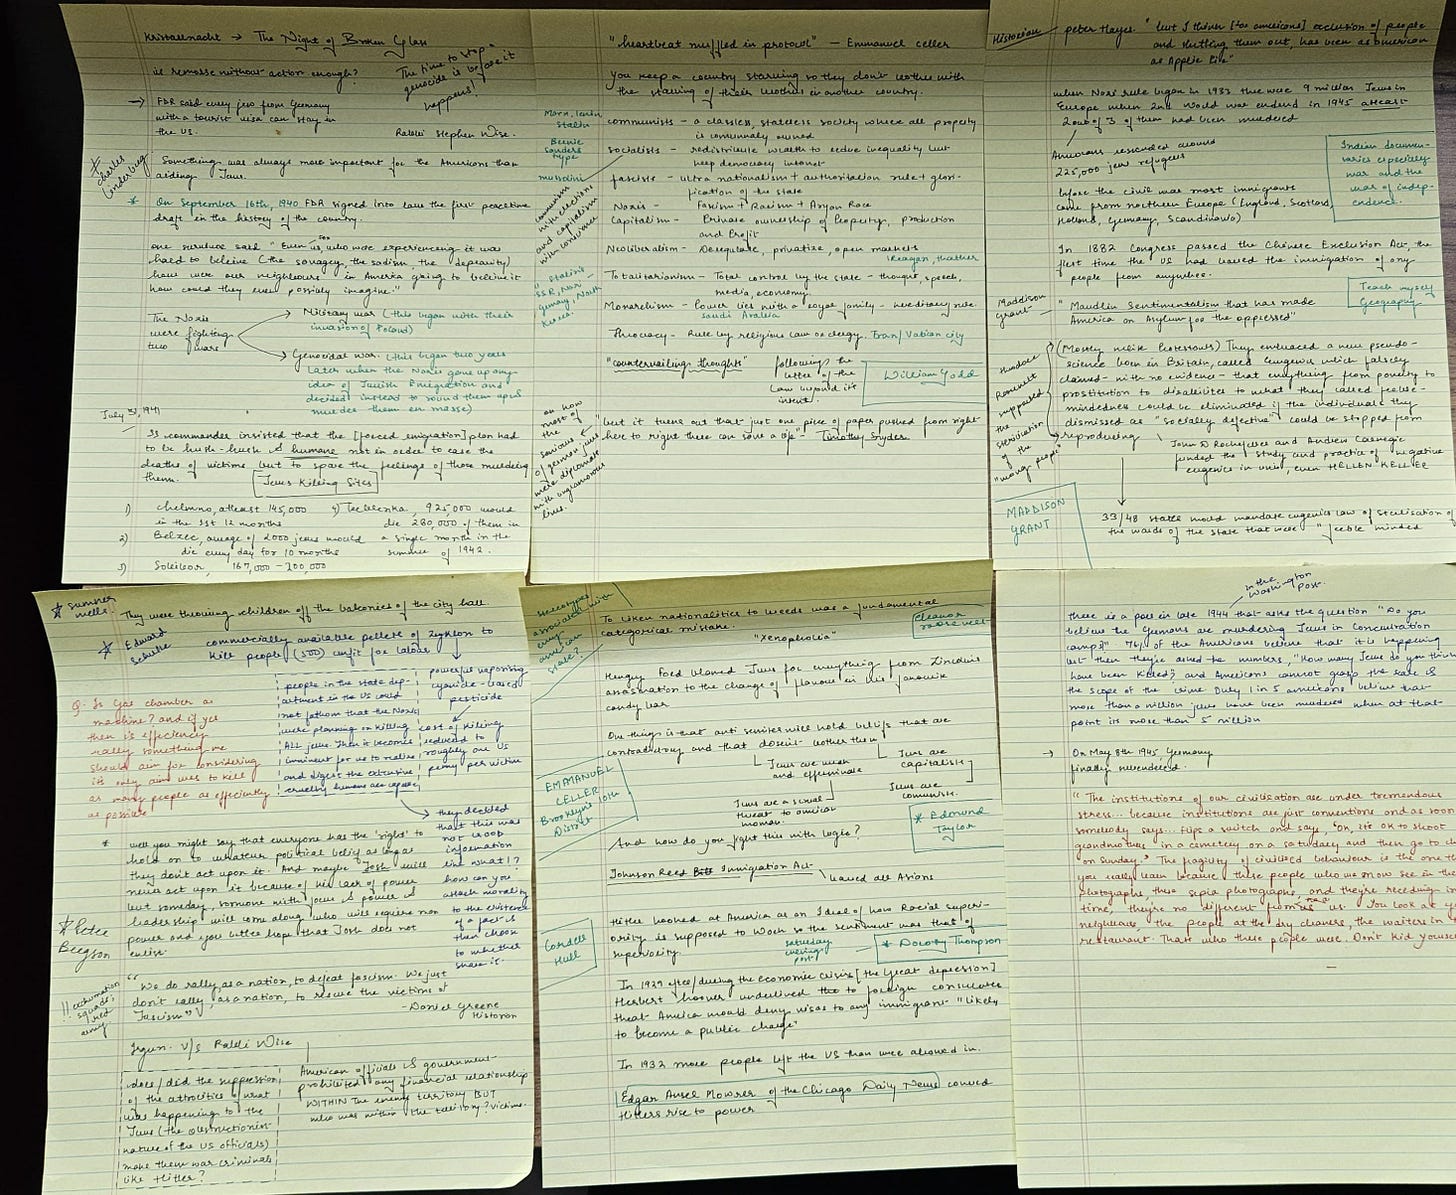 Kristallnacht → The Night of Broken Glass
is remorse without action enough?
"The time to stop
genocide is before it
happens!"
→ FDR said every jew from Germany
with a tourist visa can stay in
the US.
Rabbi Stephen Wise.
* charles
Linderberg
Somethings was always more important for the Americans than
aiding Jews.
* On September 16th, 1940 FDR signed into law the first peacetime
draft in the history of the country.
one survivor said "Even us, who were experiencing it was
hard to believe (the savagery, the sadism, the depravity)
how were our neighbours in America going to believe it
how could they even possibly imagine."
The Nazis
were fighting
two wars
Military war (this began with their
invasion of Poland)
Genocidal war. (this began two years
later when the Nazis gave up any
idea of Jewish Emigration and
decided instead to round them up &
murder them en masse)
July 31, 1941
SS commander insisted that the [forced emigration] plan had
to be hush-hush & humane not in order to ease the
deaths of victims but to spare the feelings of those murdering
them.
Jews Killing Sites
1) Chelmno, atleast 145,000
in the 1st 12 months
2) Belzec, average of 2000 jews would
die every day for 10 months
3) Sobibor, 167,000 - 200,000
4) Treblenka, 925,000 would
die 280,000 of them in
a single month in the
summer of 1942.
"heartbeat muffled in protocol" - Emmanuel celler
You keep a country starving so they don't bother with
the starving of their brothers in another country.
Marx, lenin,
stalin
Bernie
sanders
type
mussolini
communists - a classless, stateless society where all property
is communally owned
socialists - redistribute wealth to reduce inequality but
keep democracy intact
fascists - ultra nationalism + authoritarian rule + glori-
fication of the state
Nazis - Fascism + Racism + Aryan Race
Capitalism - Private ownership of Property, production
and Profit
Neoliberalism - Deregulate, privatize, open markets
Reagan, thather
Totalitarianism - Total control by the state - thought, speech,
media, economy
Monarchism - lower ties with a royal family - hereditary rule.
saudi Arabia
Theocracy - Rule by religious law or clergy. Iran/Vatican city
communism
with elections
and capitalism
with conscience
"Stalin's
SSR, Nazi
Germany, North
Korea."
"countervailing thoughts"
following the
letter of the
law beyond it's
intent.
William Yodd
but it turns out that just one piece of paper pushed from right
here to right there can save a life" - Timothy Snyder
on how
most of
the
saviours
of german jews
were diplomats
with unglamorous
lives.
Historian - peter Hayes "but I think [for americans] exclusion of people
and shutting them out, has been as american
as Apple Pie"
when Nazi rule began in 1933 there were 9 million Jews in
Europe when 2nd World war ended in 1945 atleast
2 out of 3 of them had been murdered
Americans rescinded around
225,000 jew refugees
Indian documen-
taries especially
war and the
war of indep-
endence.
before the civil war most immigrants
came from northern Europe (England, Scotland,
Holland, Germany, Scandinavia)
In 1882 Congress passed the Chinese Exclusion Act, the
first time the US had barred the immigration of any
people from anywhere.
Teach myself
Geography
Maddison
grant
"Maudlin Sentimentalism that has made
America an Asylum for the oppressed"
(Mostly white Protestants) They embraced a new pseudo-
science born in Britain, called Eugenics which falsely
claimed - with no evidence - that everything from poverty to
prostitution to disabilities to what they called feeble-
mindedness could be eliminated if the individuals they
dismissed as "socially defective" could be stopped from
reproducing
theodore
Roosevelt
supported
the
sterilisation
of the
"wrong people"
John D Rochefeller and Andrew Carnegie
funded the study and practice of negative
eugenics in univ, even HELLEN KELLER
MADDISON
GRANT
33/48 states would mandate eugenics law of sterilisation of
the wards of the state that were "feeble minded
* sumner
wells.
They were throwing children off the balconies of the city hall
* Edward
Schulte
commercially available pellets of zyklon to
kill people (500) unfit for labour
powerful vaporising
cyanide-based
pesticide
cost of killing
reduced to
roughly one US
penny per victim
Q. Is Gas chamber a
machine? and if yes
then is efficiency
really something we
should aim for considering
its only aim was to kill
as many people as efficiently
as possible
people in the state dep-
artment in the US could
not fathom that the Nazis
were planning on killing
ALL jews. Then it becomes
imminent for us to realise
and digest the extensive
cruelty humans are capable
they decided
that this was
not good
information
like what!?
how can you
attach morality
to the existence
of a fact &
then choose
to whether
share it.
* well you might say that everyone has the 'right' to
hold on to whatever political belief as long as
they don't act upon it. And maybe Josh will
never act upon it because of his lack of power
but someday, someone with power &
leadership will come along who will require non
power and you better hope that Josh does not
enlist.
* Peter
Bergson
"We do rally, as a nation, to defeat fascism. We just
don't rally, as a nation, to rescue the victims of
fascism"
- Daniel Greene
Historian
!! exhumation
squads,
red
army
Irgun v/s Rabbi Wise
American officials & government
prohibited any financial relationship
WITHIN the enemy territory BUT
who was within the territory? victims.
does/did the suppression
of the atrocities of what
was happening to the
Jews (the obstructionist
nature of the US officials)
make them war criminals
like Hitler?
stereotypes
associated with
any
american
state?
To liken nationalities to weeds was a fundamental
categorical mistake.
Eleanor
roosevelt
"Xenophobia"
Hengry Ford blamed Jews for everything from Lincoln's
assasination to the change of flavour in his favourite
candy bar.
One things is that anti semites will hold beliefs that are
contradictory and that doesn't bother them
Jews are weak
and effeminate
Jews are
capitalism
Jews are a sexual
threat to american
women.
Jews are
communism.
EMMANUEL
CELLER
Brooklyn's 10th
District
And how do you fight this with logic?
* Edmund
Taylor
Johnson Reed Bill Immigration Act
barred all Asians
Hitler looked at America as an Ideal of how Racial superi-
ority is supposed to work so the sentiment was that of
superiority.
Cordell
Hull
saturday
evening
post
* Dorothy Thompson
In 1929 after/during the economic crisis [the Great depression]
Herbert hoover underlined the to foreign consulates
that America would deny visas to any immigrant "likely
to become a public charge"
In 1932 more people left the US than were allowed in.
Edgar Ansel Mowrer of the Chicago Daily News covered
Hitlers rise to power
in the
Washington
Post.
there is a poll in late 1944 that asks the question "Do you
believe the Germans are murdering Jews in Concentration
camps?" 76% of the Americans believe that it is happening
but then they're asked the numbers, "How many Jews do you think
have been killed?" and Americans cannot grasp the scale &
the scope of the crime Only 1 in 5 americans believe that
more than a million jews have been murdered when at that
point its more than 5 million
→ On May 8th 1945, Germany
finally surrendered.
"The institutions of our civilisation are under tremendous
stress... because institutions are just conventions and as soon
somebody says... flips a switch and say, "Oh, it's OK to shoot
grandmothers in a cemetery on a saturday and then go to ch
on sunday." The fragility of civilised behaviour is the one th
you really learn because these people who we now see in the
photographs, these sepia photographs, and they're receding in
time, they're no different from us. You look at yo
neighbours, the people at the dry cleaners, the waiters in
restaurant. That's who these people were. Don't kid yourse